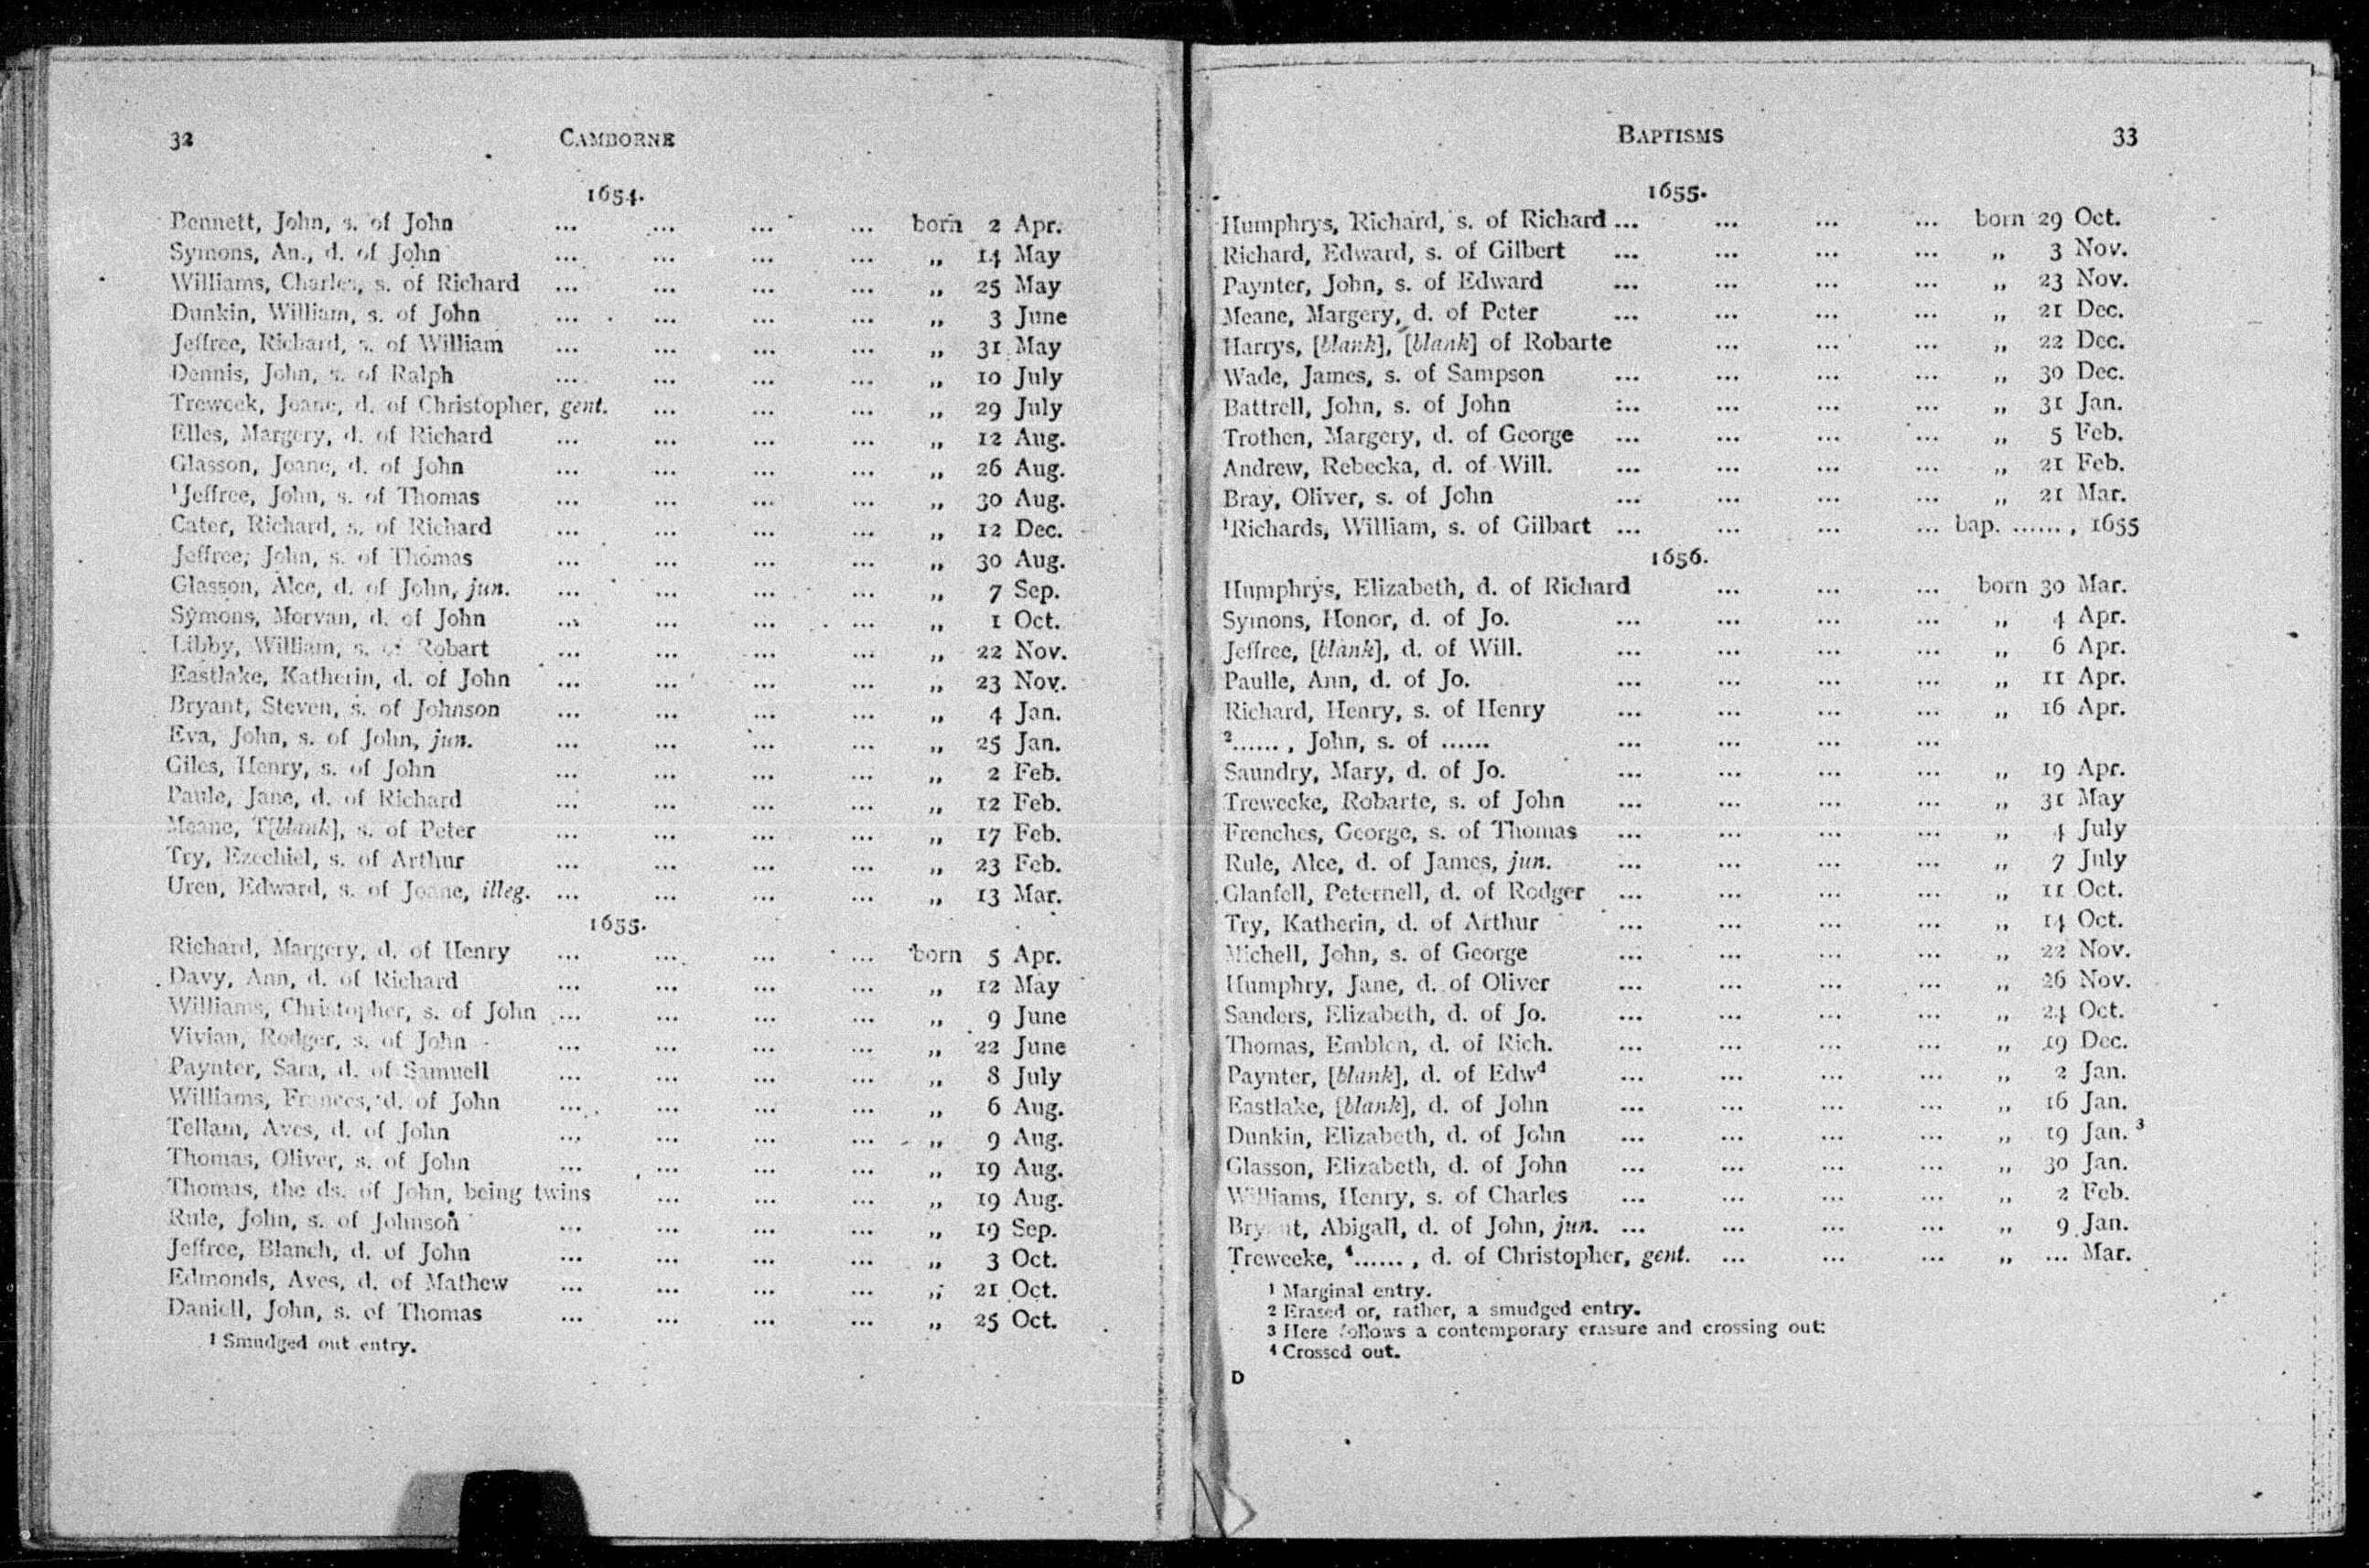 32 CAMBORNE
1654.
Bennett, John, s. of John ... ... ... ... born 2 Apr.
Symons, An., d. of John ... ... ... ... „ 14 May
Williams, Charles, s. of Richard ... ... ... ... „ 25 May
Dunkin, William, s. of John ... ... ... ... „ 3 June
Jeffree, Richard, s. of William ... ... ... ... „ 31 May
Dennis, John, s. of Ralph ... ... ... ... „ 10 July
Treweek, Joane, d. of Christopher, gent. ... ... ... „ 29 July
Elles, Margery, d. of Richard ... ... ... ... „ 12 Aug.
Glasson, Joane, d. of John ... ... ... ... „ 26 Aug.
¹Jeffree, John, s. of Thomas ... ... ... ... „ 30 Aug.
Cater, Richard, s. of Richard ... ... ... ... „ 12 Dec.
Jeffree, John, s. of Thomas ... ... ... ... „ 30 Aug.
Glasson, Alce, d. of John, jun. ... ... ... ... „ 7 Sep.
Symons, Morvan, d. of John ... ... ... ... „ 1 Oct.
Libby, William, s. of Robart ... ... ... ... „ 22 Nov.
Eastlake, Katherin, d. of John ... ... ... ... „ 23 Nov.
Bryant, Steven, s. of Johnson ... ... ... ... „ 4 Jan.
Eva, John, s. of John, jun. ... ... ... ... „ 25 Jan.
Giles, Henry, s. of John ... ... ... ... „ 2 Feb.
Paule, Jane, d. of Richard ... ... ... ... „ 12 Feb.
Meane, T[blank], s. of Peter ... ... ... ... „ 17 Feb.
Try, Ezechiel, s. of Arthur ... ... ... ... „ 23 Feb.
Uren, Edward, s. of Joane, illeg. ... ... ... ... „ 13 Mar.
1655.
Richard, Margery, d. of Henry ... ... ... ... born 5 Apr.
Davy, Ann, d. of Richard ... ... ... ... „ 12 May
Williams, Christopher, s. of John ... ... ... ... „ 9 June
Vivian, Rodger, s. of John ... ... ... ... „ 22 June
Paynter, Sara, d. of Samuell ... ... ... ... „ 8 July
Williams, Frances, d. of John ... ... ... ... „ 6 Aug.
Tellam, Aves, d. of John ... ... ... ... „ 9 Aug.
Thomas, Oliver, s. of John ... ... ... ... „ 19 Aug.
Thomas, the ds. of John, being twins ... ... ... „ 19 Aug.
Rule, John, s. of Johnson ... ... ... ... „ 19 Sep.
Jeffree, Blanch, d. of John ... ... ... ... „ 3 Oct.
Edmonds, Aves, d. of Mathew ... ... ... ... „ 21 Oct.
Daniell, John, s. of Thomas ... ... ... ... „ 25 Oct.
¹ Smudged out entry.
BAPTISMS 33
1655.
Humphrys, Richard, s. of Richard ... ... ... ... born 29 Oct.
Richard, Edward, s. of Gilbert ... ... ... ... „ 3 Nov.
Paynter, John, s. of Edward ... ... ... ... „ 23 Nov.
Meane, Margery, d. of Peter ... ... ... ... „ 21 Dec.
Harrys, [blank], [blank] of Robarte ... ... ... „ 22 Dec.
Wade, James, s. of Sampson ... ... ... ... „ 30 Dec.
Battrell, John, s. of John ... ... ... ... „ 31 Jan.
Trothen, Margery, d. of George ... ... ... ... „ 5 Feb.
Andrew, Rebecka, d. of Will. ... ... ... ... „ 21 Feb.
Bray, Oliver, s. of John ... ... ... ... „ 21 Mar.
¹Richards, William, s. of Gilbart ... ... ... ... bap. ...... , 1655
1656.
Humphrys, Elizabeth, d. of Richard ... ... ... born 30 Mar.
Symons, Honor, d. of Jo. ... ... ... ... „ 4 Apr.
Jeffree, [blank], d. of Will. ... ... ... ... „ 6 Apr.
Paulle, Ann, d. of Jo. ... ... ... ... „ 11 Apr.
Richard, Henry, s. of Henry ... ... ... ... „ 16 Apr.
²...... , John, s. of ...... ... ... ... ...
Saundry, Mary, d. of Jo. ... ... ... ... „ 19 Apr.
Treweeke, Robarte, s. of John ... ... ... ... „ 31 May
Frenches, George, s. of Thomas ... ... ... ... „ 4 July
Rule, Alce, d. of James, jun. ... ... ... ... „ 7 July
Glanfell, Peternell, d. of Rodger ... ... ... ... „ 11 Oct.
Try, Katherin, d. of Arthur ... ... ... ... „ 14 Oct.
Michell, John, s. of George ... ... ... ... „ 22 Nov.
Humphry, Jane, d. of Oliver ... ... ... ... „ 26 Nov.
Sanders, Elizabeth, d. of Jo. ... ... ... ... „ 24 Oct.
Thomas, Emblen, d. of Rich. ... ... ... ... „ 19 Dec.
Paynter, [blank], d. of Edwᵈ ... ... ... ... „ 2 Jan.
Eastlake, [blank], d. of John ... ... ... ... „ 16 Jan.
Dunkin, Elizabeth, d. of John ... ... ... ... „ 19 Jan.³
Glasson, Elizabeth, d. of John ... ... ... ... „ 30 Jan.
Williams, Henry, s. of Charles ... ... ... ... „ 2 Feb.
Bryant, Abigall, d. of John, jun. ... ... ... ... „ 9 Jan.
Treweeke, ⁴...... , d. of Christopher, gent. ... ... ... „ ... Mar.
¹ Marginal entry.
² Erased or, rather, a smudged entry.
³ Here follows a contemporary erasure and crossing out.
⁴ Crossed out.
D